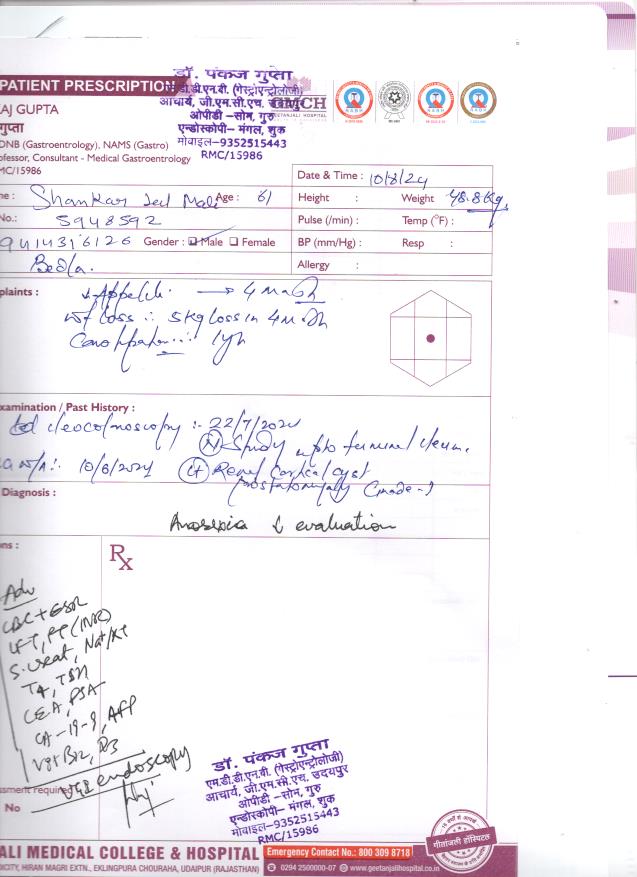 PATIENT PRESCRIPTION
डॉ. पंकज गुप्ता
डी.एन.बी. (गेस्ट्रोएन्ट्रोलोजी)
आचार्य, जी.एम.सी.एच.
ओपीडी – सोम, गुरु
एन्डोस्कोपी – मंगल, शुक्र
मोबाइल-9352515443
RMC/15986
GMCH
GEETANJALI HOSPITAL
AJ GUPTA
गुप्ता
DNB (Gastroenterology), NAMS (Gastro)
ofessor, Consultant - Medical Gastroenterology
MC/15986
Date & Time : 10/8/24
me : Shankar Lal Mali Age : 61
Height : Weight 48.8 Kg
No.: 5948592
Pulse (/min) : Temp (°F) :
9414316126 Gender : Male Female
BP (mm/Hg) : Resp :
Bedla.
Allergy :
plaints :
↓ Appetite → 4 Month
wt loss :: 5 kg loss in 4 Month
Constipation :: 1 yr
xamination / Past History :
ileocolonoscopy :- 22/7/2024
(N) Study upto terminal ileum.
10/6/2024 Renal Cortical cyst
Prostatomegaly Grade-I
Diagnosis :
Anorexia evaluation
ns :
Rx
Adv
CBC + ESR
LFT, PT (INR)
S. creat, Na+/K+
T4, TSH
CEA, PSA
CA-19-9, AFP
Vit B12, D3
UGI endoscopy
ssment required
No
डॉ. पंकज गुप्ता
एम.डी.डी.एन.बी. (गेस्ट्रोएन्ट्रोलोजी)
आचार्य, जी.एम.सी.एच. उदयपुर
ओपीडी –सोम, गुरु
एन्डोस्कोपी– मंगल, शुक्र
मोबाइल–9352515443
RMC/15986
गीतांजली हॉस्पिटल
ALI MEDICAL COLLEGE & HOSPITAL
Emergency Contact No.: 800 309 8718
DICITY, HIRAN MAGRI EXTN., EKLINGPURA CHOURAHA, UDAIPUR (RAJASTHAN)
0294 2500000-07 www.geetanjalihospital.co.in